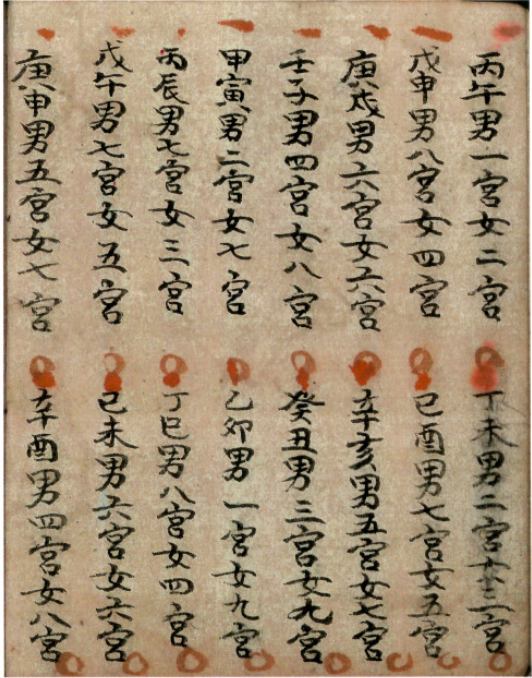 丙午男一宮女二宮 丁未男二宮女三宮
戊申男八宮女四宮 己酉男七宮女五宮
庚戌男六宮女六宮 辛亥男五宮女七宮
壬子男四宮女八宮 癸丑男三宮女九宮
甲寅男二宮女七宮 乙卯男一宮女九宮
丙辰男七宮女三宮 丁巳男八宮女四宮
戊午男七宮女五宮 己未男六宮女六宮
庚申男五宮女七宮 辛酉男四宮女八宮